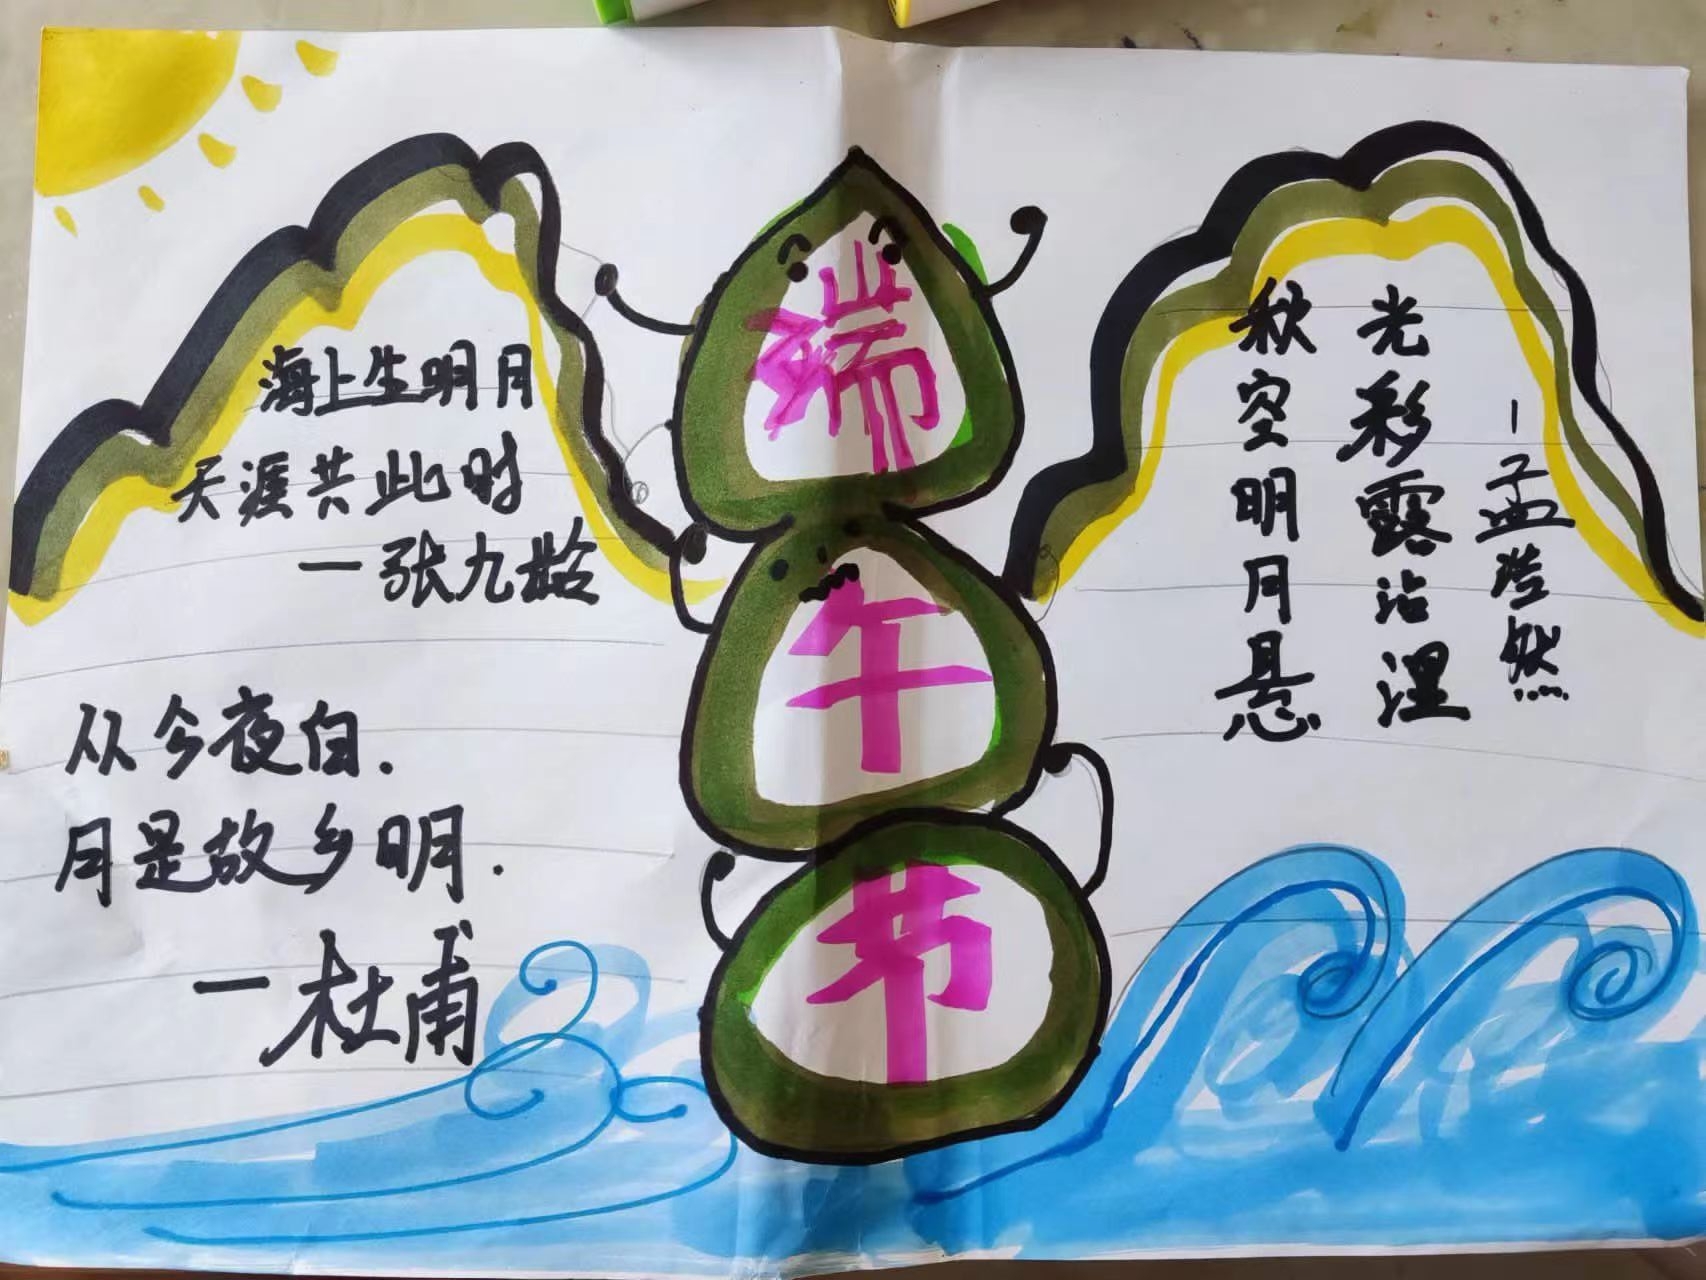 端午节
海上生明月
天涯共此时
—张九龄
从今夜白.
月是故乡明.
—杜甫
秋空明月悬
光彩露沾湿
-孟浩然